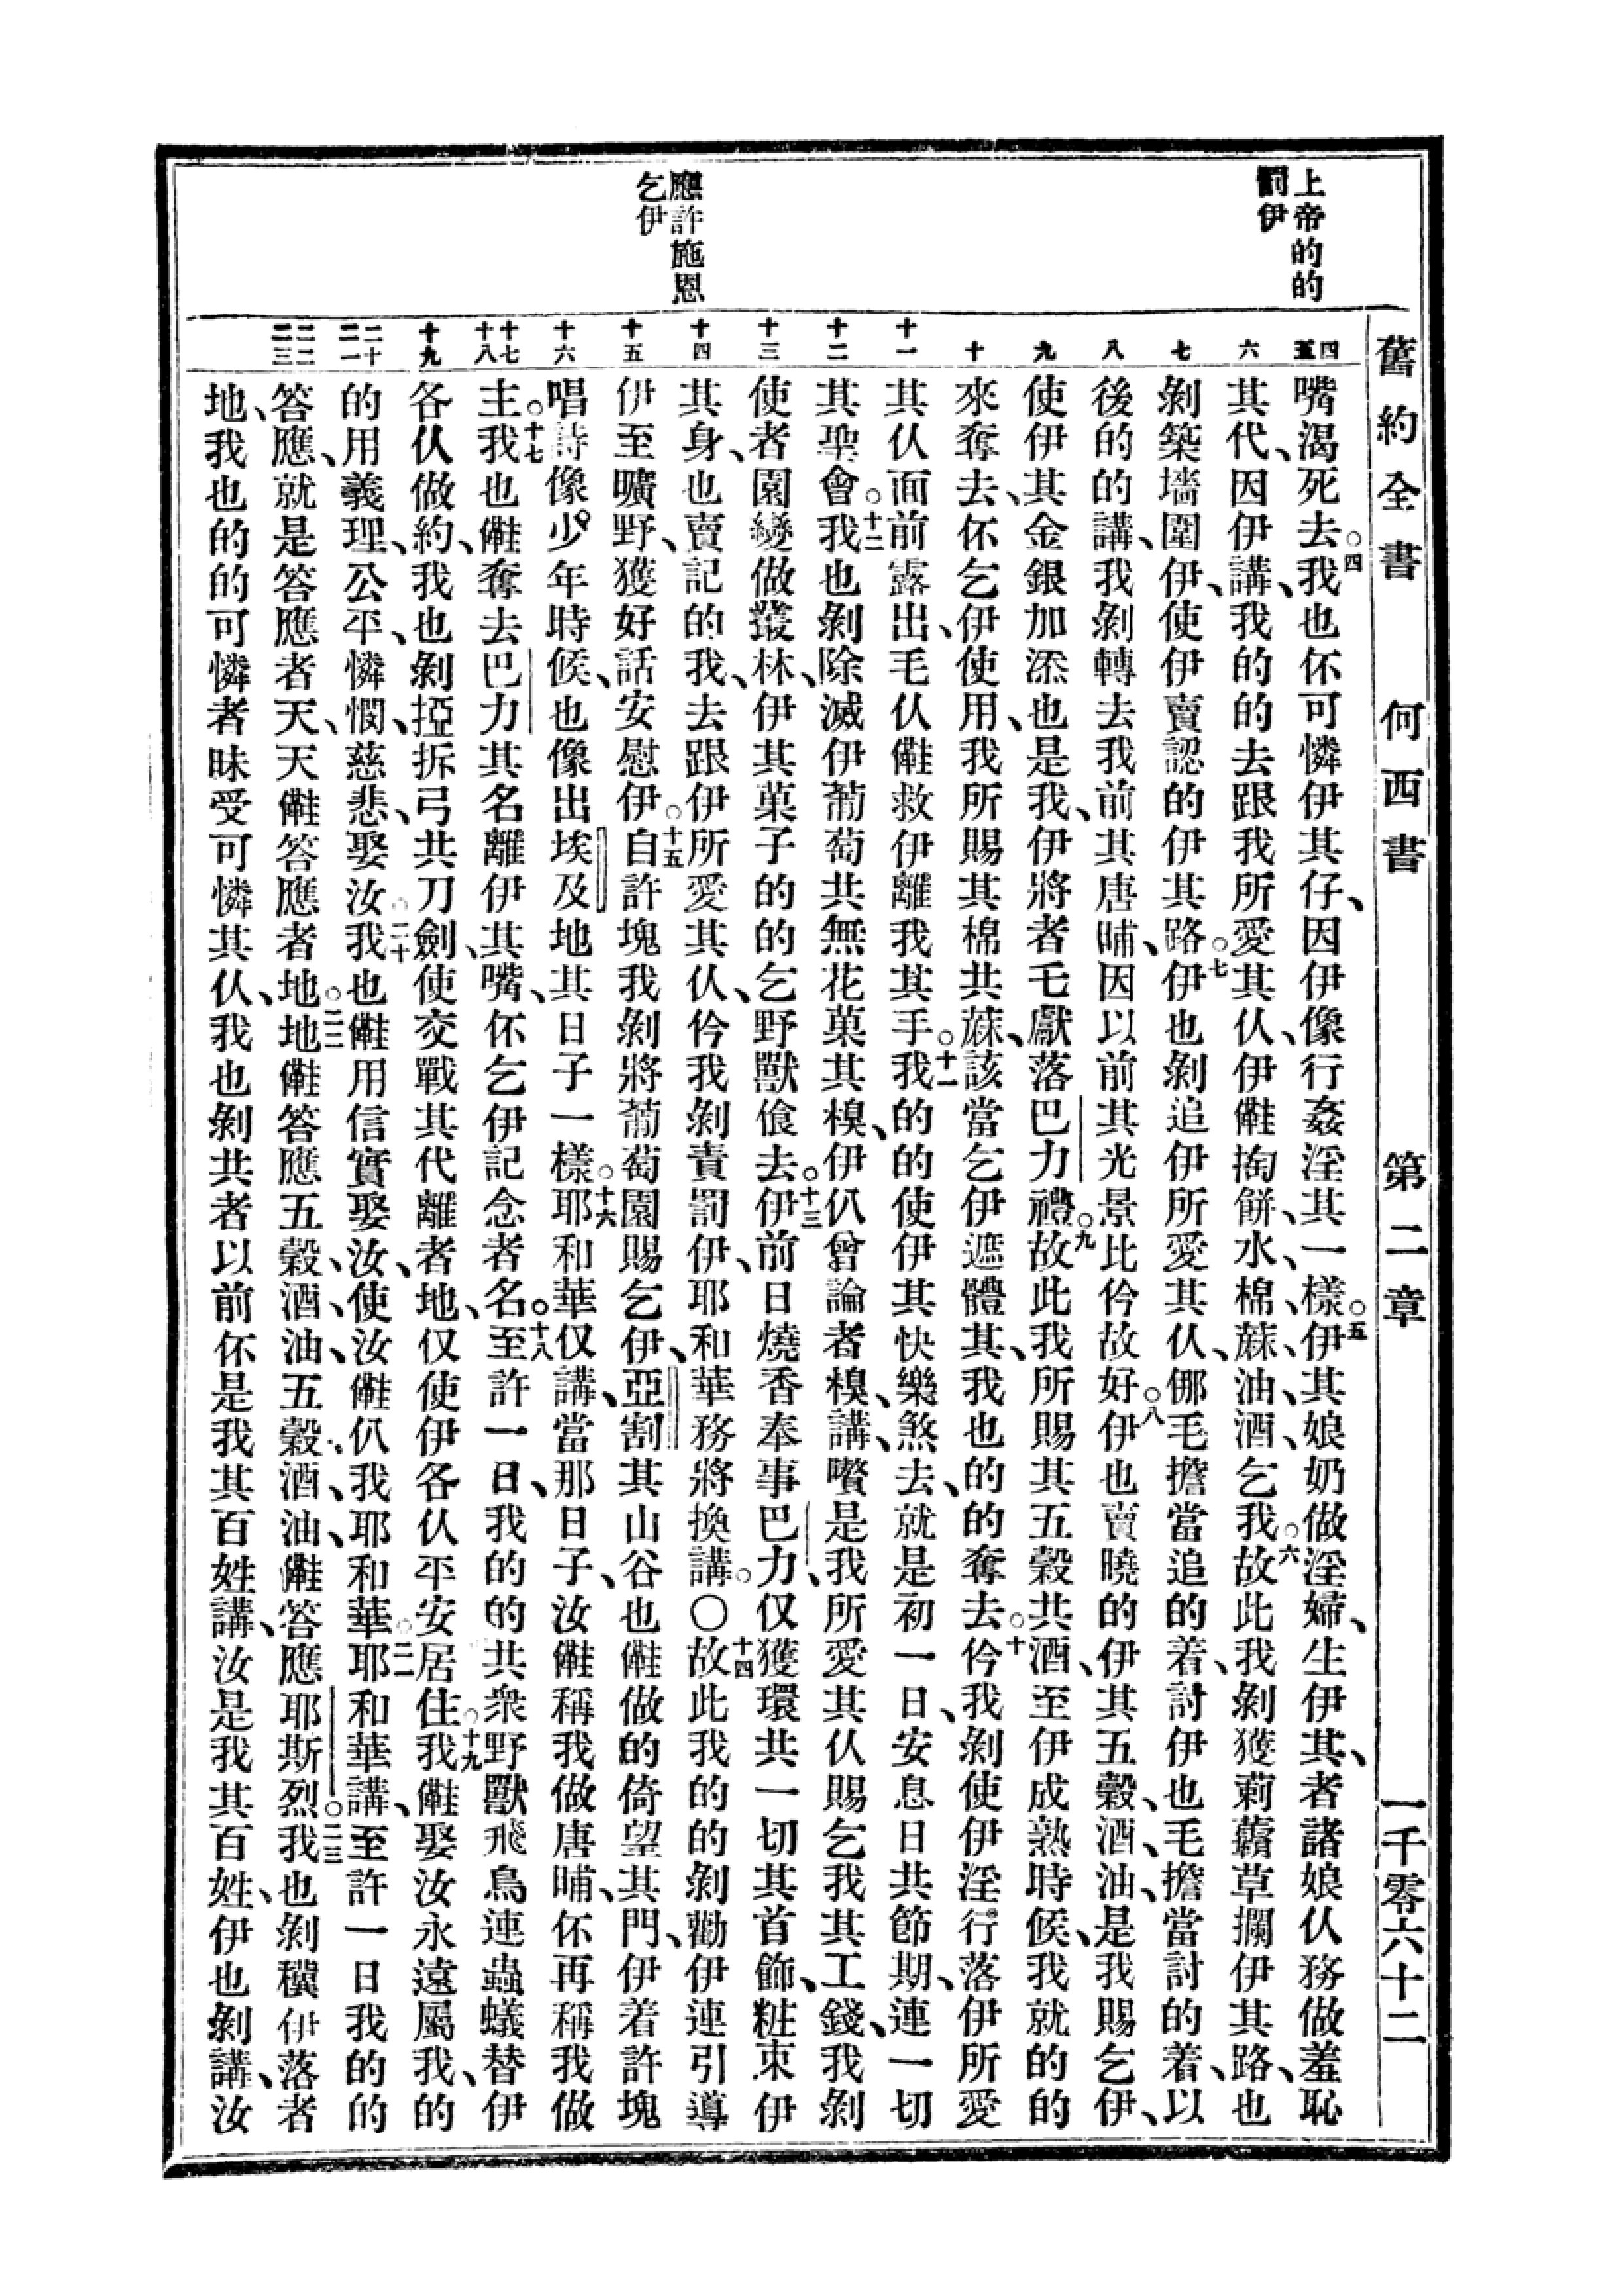 舊約全書　何西書　第二章　一千零六十二
上帝的的
罰伊
應許施恩
乞伊
四
五
六
七
八
九
十
十一
十二
十三
十四
十五
十六
十七
十八
十九
二十
二一
二二
二三
嘴渴死去。四我也伓可憐伊其仔、因伊像行姦淫其一樣。五伊其娘奶做淫婦、生伊其、者諸娘仈務做羞恥
其代、因伊講、我的的去跟我所愛其仈、伊𠆧掏餅、水、棉、蔴、油、酒、乞我。六故此我剝獲莿藬草攔伊其路、也
剝築墻圍伊、使伊賣認的伊其路。七伊也剝追伊所愛其仈、㑚毛擔當追的着、討伊也毛擔當討的着、以
後的的講、我剝轉去我前其唐晡、因以前其光景比仱故好。八伊也賣曉的伊其五穀、酒、油、是我賜乞伊、
使伊其金銀加添也是我、伊將者毛獻落巴力禮。九故此我所賜其五穀共酒、至伊成熟時候、我就的的
來奪去、伓乞伊使用、我所賜其棉共蔴、該當乞伊遮體其、我也的的奪去。十仱我剝使伊淫行落伊所愛
其仈面前露出、毛仈𠆧救伊離我其手。十一我的的使伊其快樂煞去、就是初一日、安息日共節期、連一切
其聖會。十二我也剝除滅伊葡萄共無花菓其樹、伊仈曾論者樹、講、嚽是我所愛其仈賜乞我其工錢、我剝
使者園變做叢林、伊其菓子的的乞野獸飧去。十三伊前日燒香奉事巴力、仅獲環共一切其首飾、粧束伊
其身、也賣記的我、去跟伊所愛其仈、仱我剝責罰伊、耶和華務將換講。〇十四故此我的的剝勸伊連引導
伊至曠野、獲好話安慰伊。十五自許塊我剝將葡萄園賜乞伊、亞割其山谷也𠆧做的倚望其門、伊着許塊
唱詩像少年時候、也像出埃及地其日子一樣。十六耶和華仅講、當那日子、汝𠆧稱我做唐晡、伓再稱我做
主。十七我也𠆧奪去巴力其名離伊其嘴、伓乞伊記念者名。十八至許一日、我的的共衆野獸飛鳥連蟲蟻替伊
各仈做約、我也剝掗拆弓共刀劍、使交戰其代離者地、仅使伊各仈平安居住。十九我𠆧娶汝永遠屬我、的
的用義理、公平、憐憫、慈悲、娶汝。二十我也𠆧用信實娶汝、使汝𠆧仈我耶和華。二一耶和華講、至許一日我的的
答應、就是答應者天、天𠆧答應者地。二二地𠆧答應五穀、酒、油、五穀、酒、油、𠆧答應耶斯烈。二三我也剝穳伊落者
地、我也的的可憐者昧受可憐其仈、我也剝共者以前伓是我其百姓講、汝是我其百姓、伊也剝講、汝